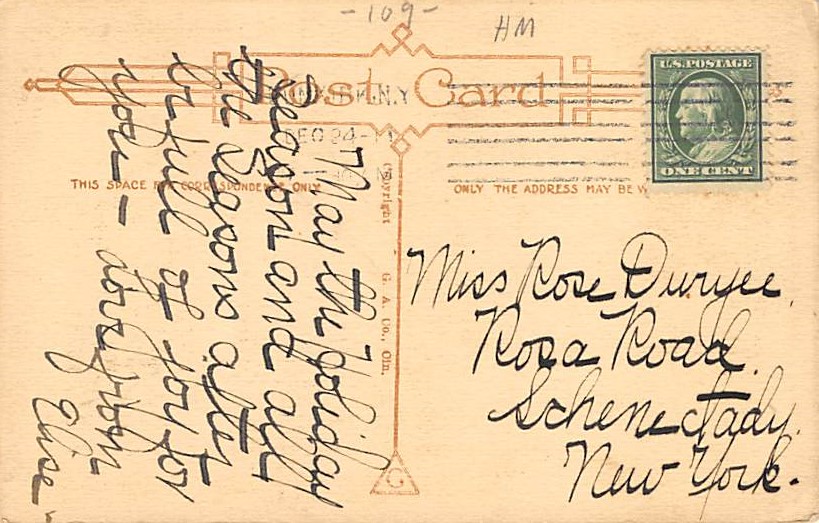 -109-
HM
Post Card
N.Y.
DEC 24
U.S. POSTAGE
ONE CENT
THIS SPACE FOR CORRESPONDENCE ONLY
ONLY THE ADDRESS MAY BE
Copyright G. A. Co., Cin.
G
May the holiday
season and all
the seasons after
be full of joy for
you - love from
Elise
Miss Rose Duryee.
Rosa Road.
Schenectady.
New York.